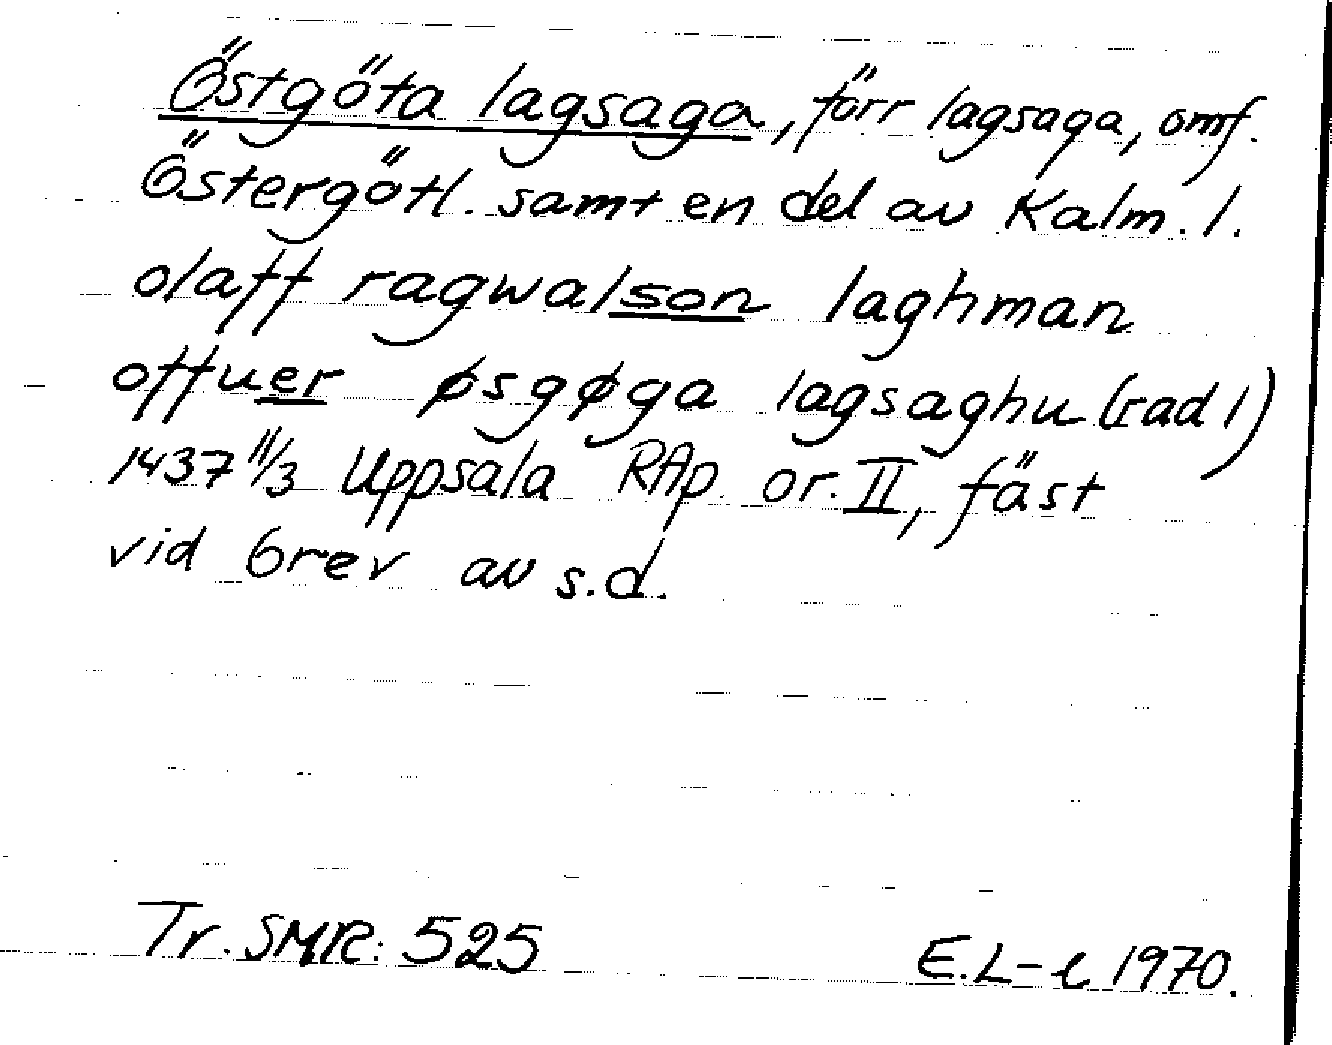 Östgöta lagsaga, förr lagsaga, omf.
Östergötl. samt en del av Kalm. l.
olaff ragwalson laghman
offuer øsgøga lagsaghu (rad 1)
1437 11/3 Uppsala RAp. or. II, fäst
vid brev av s.d.
Tr. SMR: 525
E.L-l 1970.